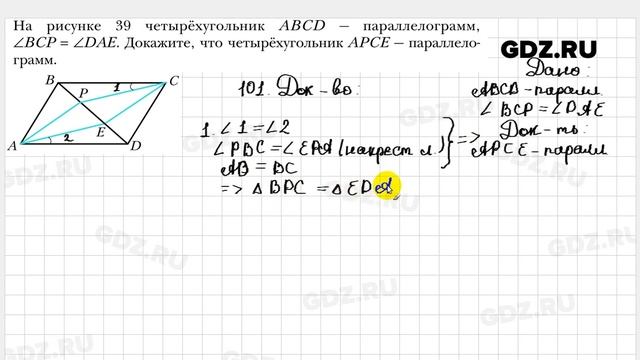 На рисунке 39 четырёхугольник ABCD — параллелограмм,
∠BCP = ∠DAE. Докажите, что четырёхугольник APCE — параллело-
грамм.
GDZ.RU
B
C
P
1
E
2
A
D
101. Док-во:
Дано:
ABCD-паралл
∠BCP=∠DAE
Док-ть:
APCE-паралл
1. ∠1=∠2
∠PBC=∠EDA (накрест л.)
AB = BC
=> △BPC = △EDA,
} =>
GDZ.RU
GDZ.RU
GDZ.RU
GDZ.RU
GDZ.RU